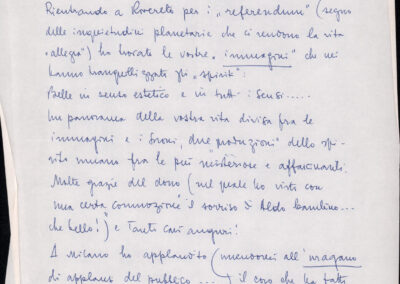 Rientrando a Rovereto per i „referendum" (segno
delle inquietudini planetarie che ci rendono la vita
„allegra") ho trovato le vostre „immagini" che mi
hanno tranquillizzato gli „spiriti":
Belle in senso estetico e in tutti i sensi.....
Un panorama della vostra vita divisa fra le
immagini e i suoni, due „produzioni" dello spi-
rito umano fra le più misteriose e affascinanti.
Molte grazie del dono (nel quale ho visto con
una certa commozione il sorriso di Aldo bambino...
che bello!) e tanti cari auguri!
A Milano ho applaudito (unendomi all'uragano
di applausi del pubblico....) il coro che ha fatto